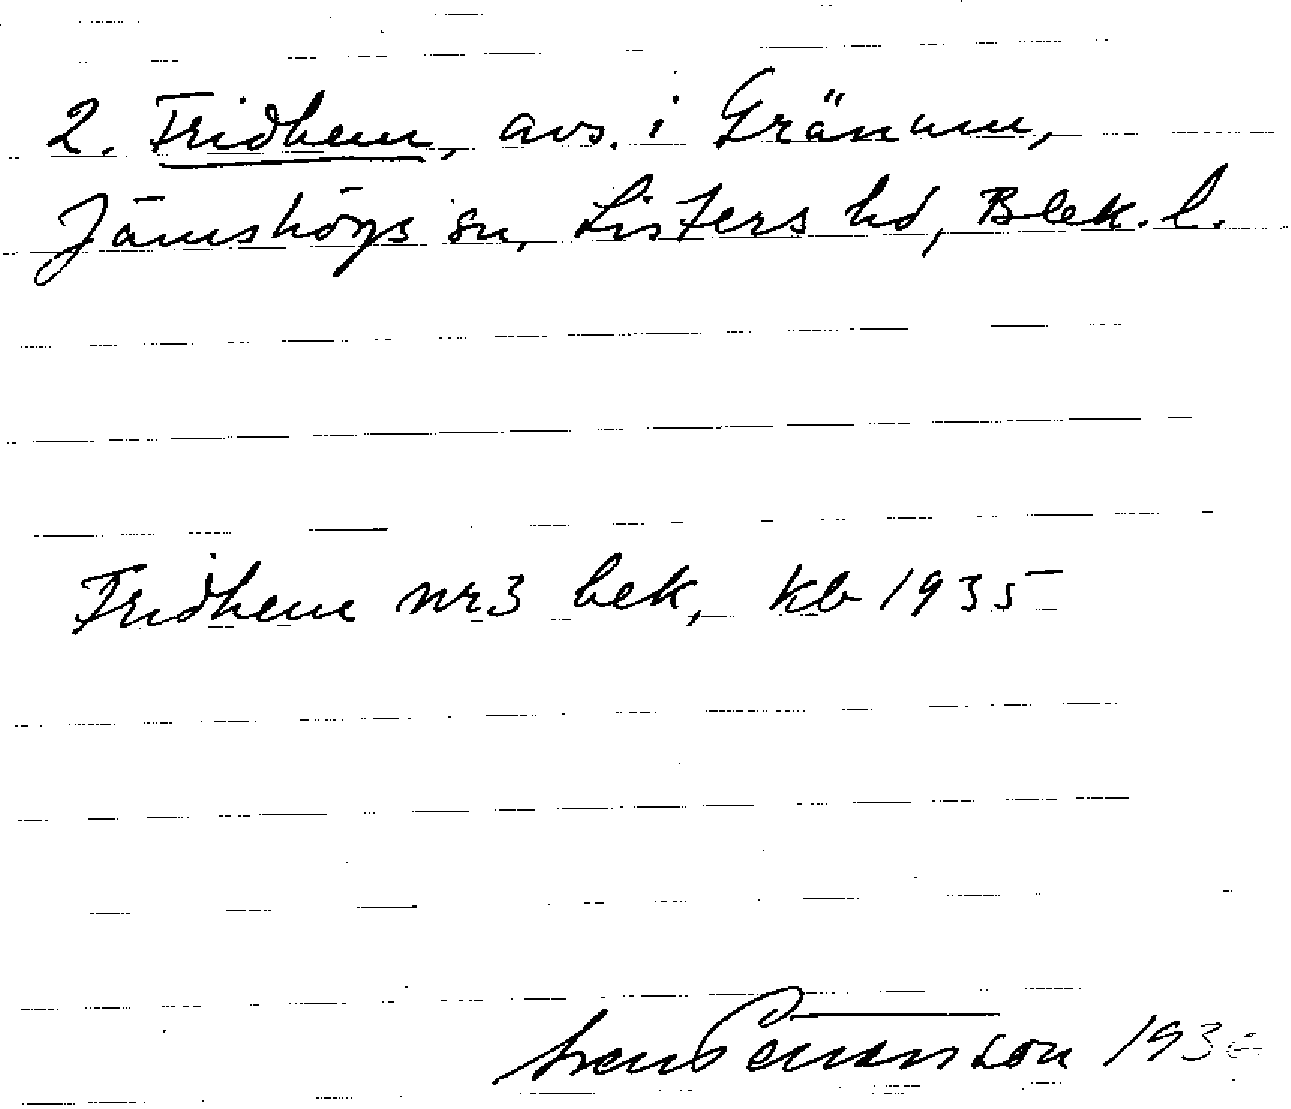 2. Fridhem, avs. i Gränum,
Jämshögs sn, Listers hd, Blek. l.
Fridhem nr 3 bek, kb 1935
Sven Benson 193